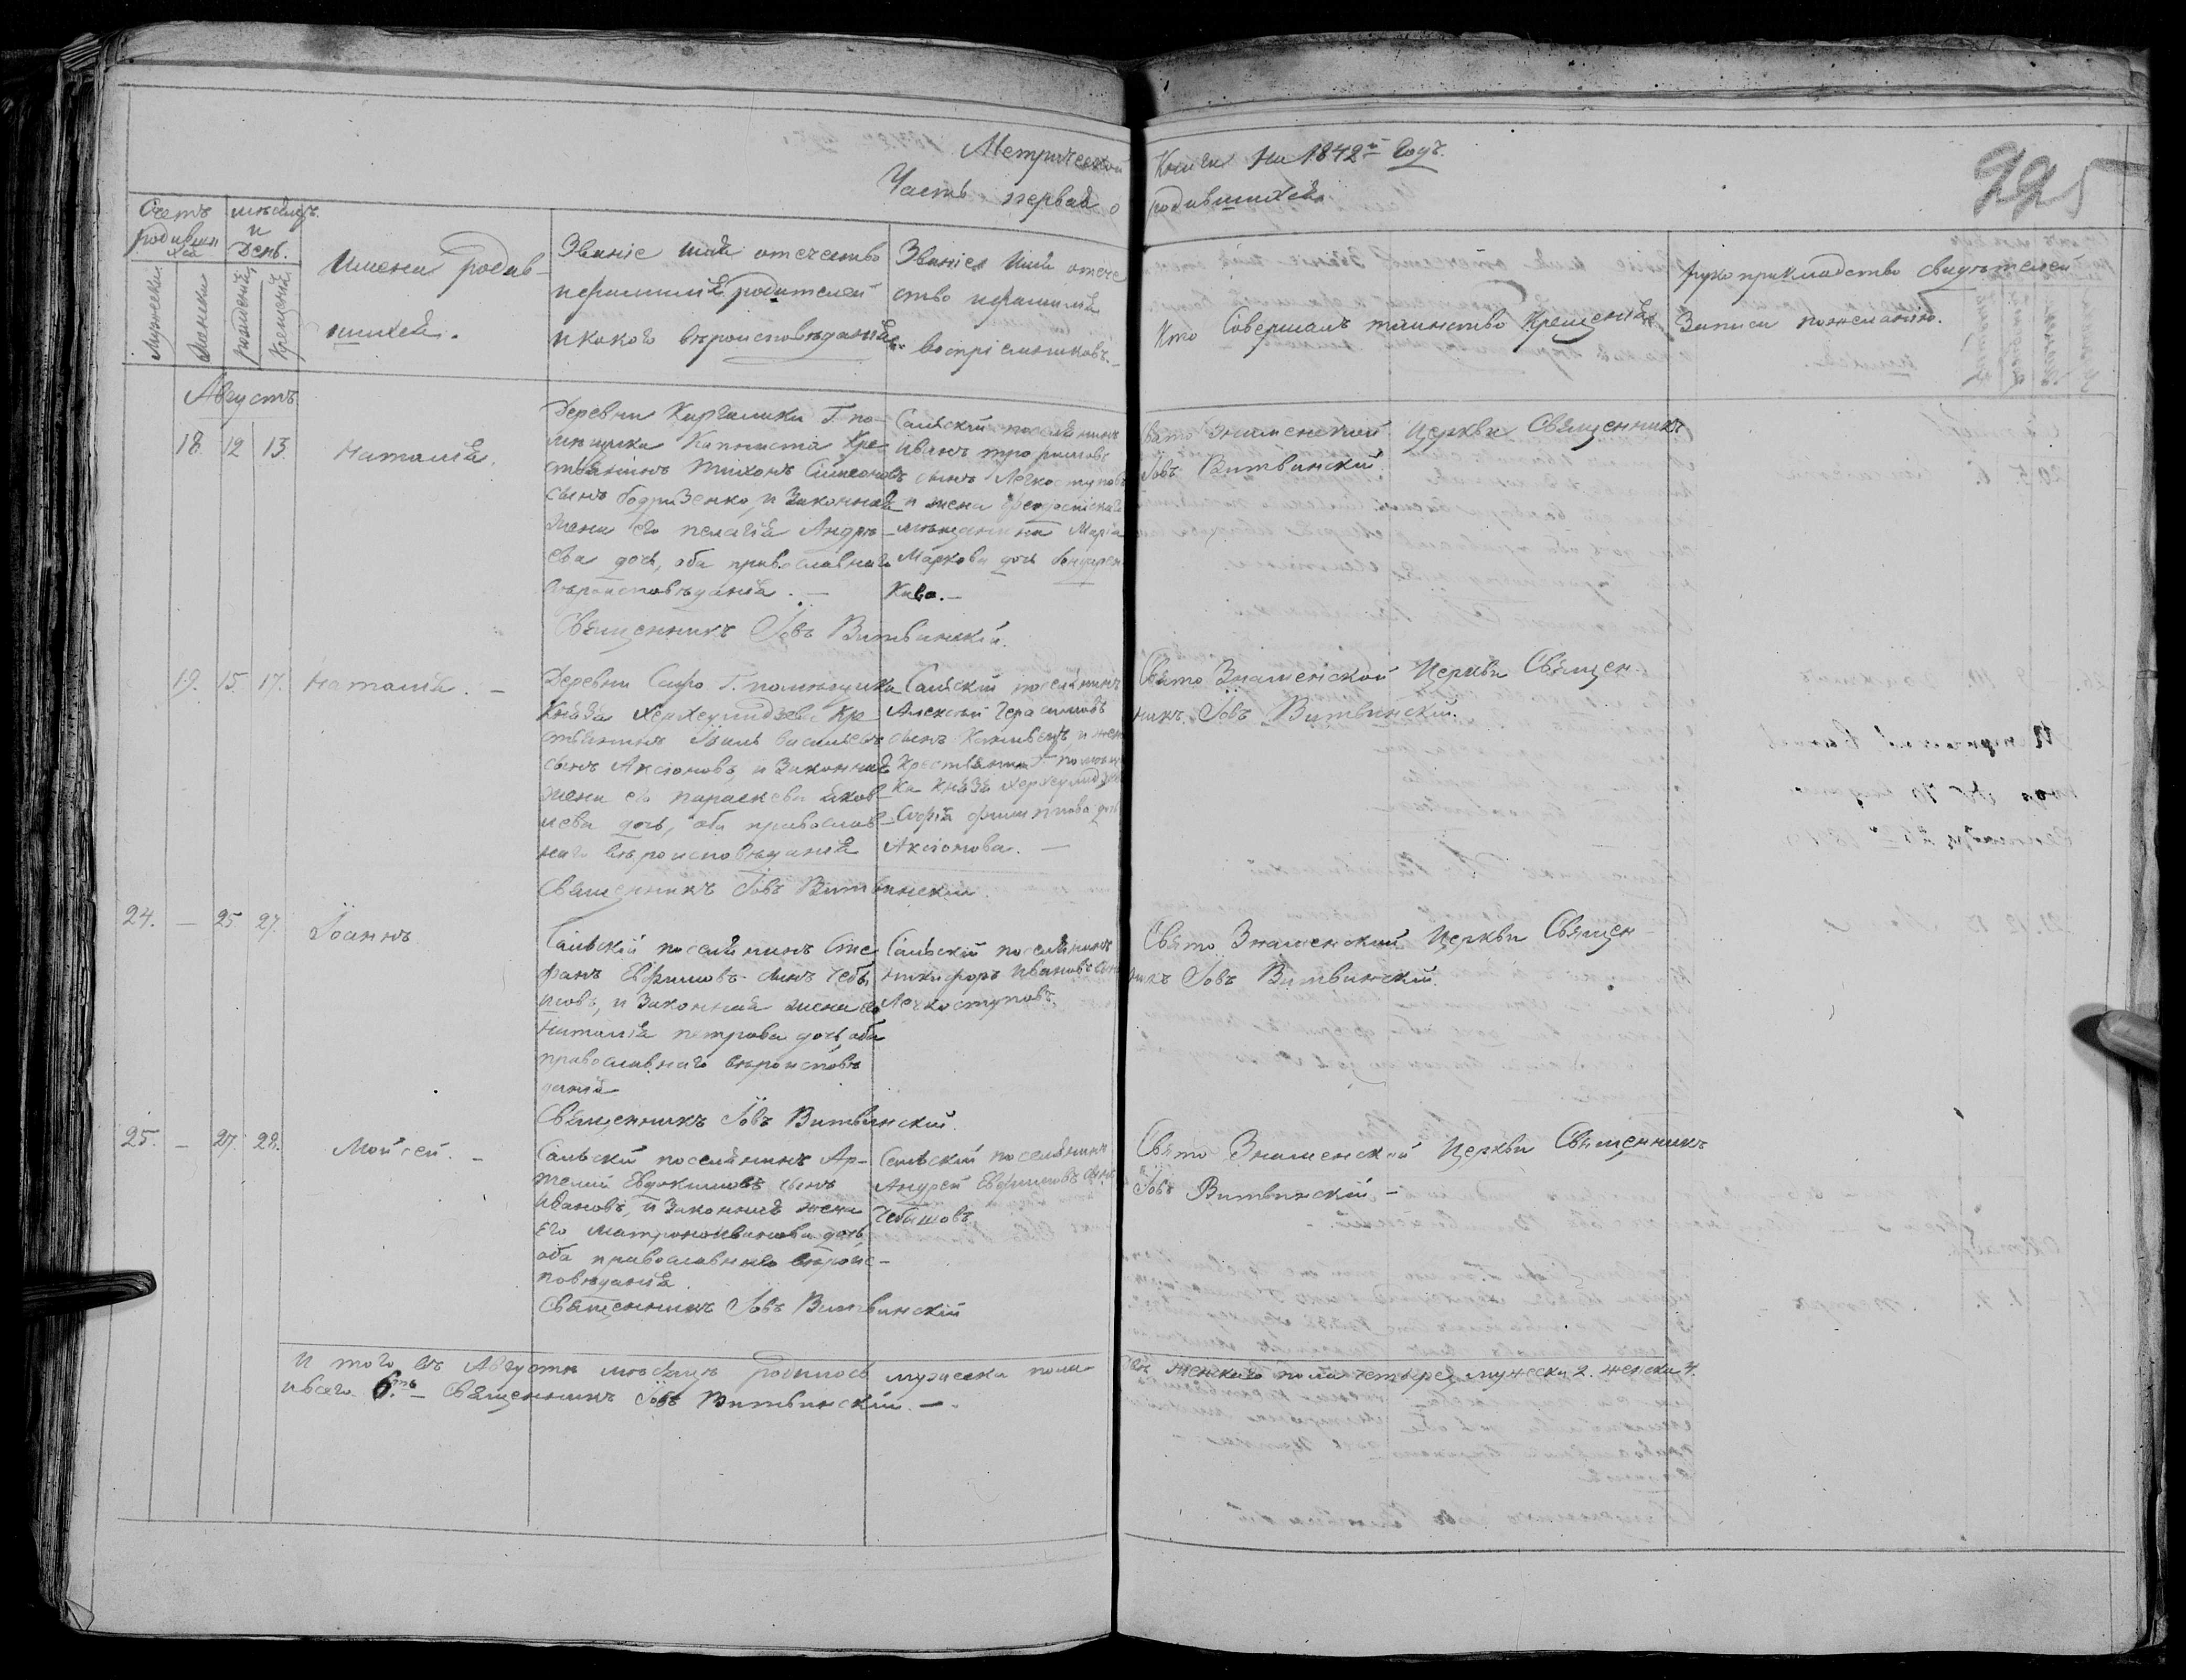 Метрической Книги На 1842й Годъ.
Часть первая о родившихся.
225
Счетъ родившихся
мѣсяцъ и День.
Мужески
Женски
рожденія
Крещенія
Имена родившихся.
Званіе имя отечество
и фамилія родителей
и какого вѣроисповѣданія
Званіе Имя отече
ство и фамилія
воспріемниковъ.
Кто Совершалъ таинство Крещенія
рукоприкладство свидѣтелей
Записи по желанію.
Августъ
18 12 13 Наталія.
Деревни Г. по-
мѣщика Капниста Кре
стьянинъ Тихонъ Симеоновъ
сынъ и Законная
Жена его пелагія Андрѣ-
ева дочь, оба православнаго
вѣроисповѣданія. —
Священникъ Іовъ Витвинскій.
Сальскій поселянинъ
Иванъ Трофимовъ
сынъ Легкоступовъ
и жена
мѣщанина Марія
Маркова дочь Бондарен
Кова. —
Свято Знаменской Церкви Священникъ
Іовъ Витвинскій
19. 15. 17. Наталія. —
Деревни Г. помѣщика
Князя Херхеулидзева Кре
стьянинъ Васильевъ
сынъ Аксіоновъ, и Законная
Жена его параскева Яков-
лева дочь, оба православ-
наго вѣроисповѣданія
Священникъ Іовъ Витвинскій.
Сальскій поселянинъ
Алексѣй Герасимовъ
сынъ и жен
Крестьянина Г. помѣщи
ка Князя Херхеулидзев
Софія Филиппова дочь
Аксіонова. —
Свято Знаменской Церкви Священ-
никъ Іовъ Витвинскій.
24. — 25 27. Іоаннъ
Сальскій поселянинъ Сте
фанъ Евфимовъ сынъ Чебы
шовъ, и Законная жена его
Наталія петрова дочь, оба
православнаго вѣроисповѣ
данія
Священникъ Іовъ Витвинскій.
Сальскій поселянинъ
никифоръ Ивановъ сын
Легкоступовъ.
Свято Знаменской Церкви Священ-
никъ Іовъ Витвинскій.
25. — 27. 28. Мойсей. —
Сальскій поселянинъ Ар-
темій Евдокимовъ сынъ
Ивановъ, и Законная жена
Его Матрона Иванова дочь,
оба православнаго вѣроис-
повѣданія.
Священникъ Іовъ Витвинскій
Сальскій поселянинъ
Андрей Евфимовъ сынъ
Чебышовъ
Свято Знаменской Церкви Священникъ
Іовъ Витвинскій —
И того въ Августѣ мѣсяцѣ родилось мужеска пола два женскаго пола четыре, мужеска 2. женска 4.
и всего 6.ть Священникъ Іовъ Витвинскій. —